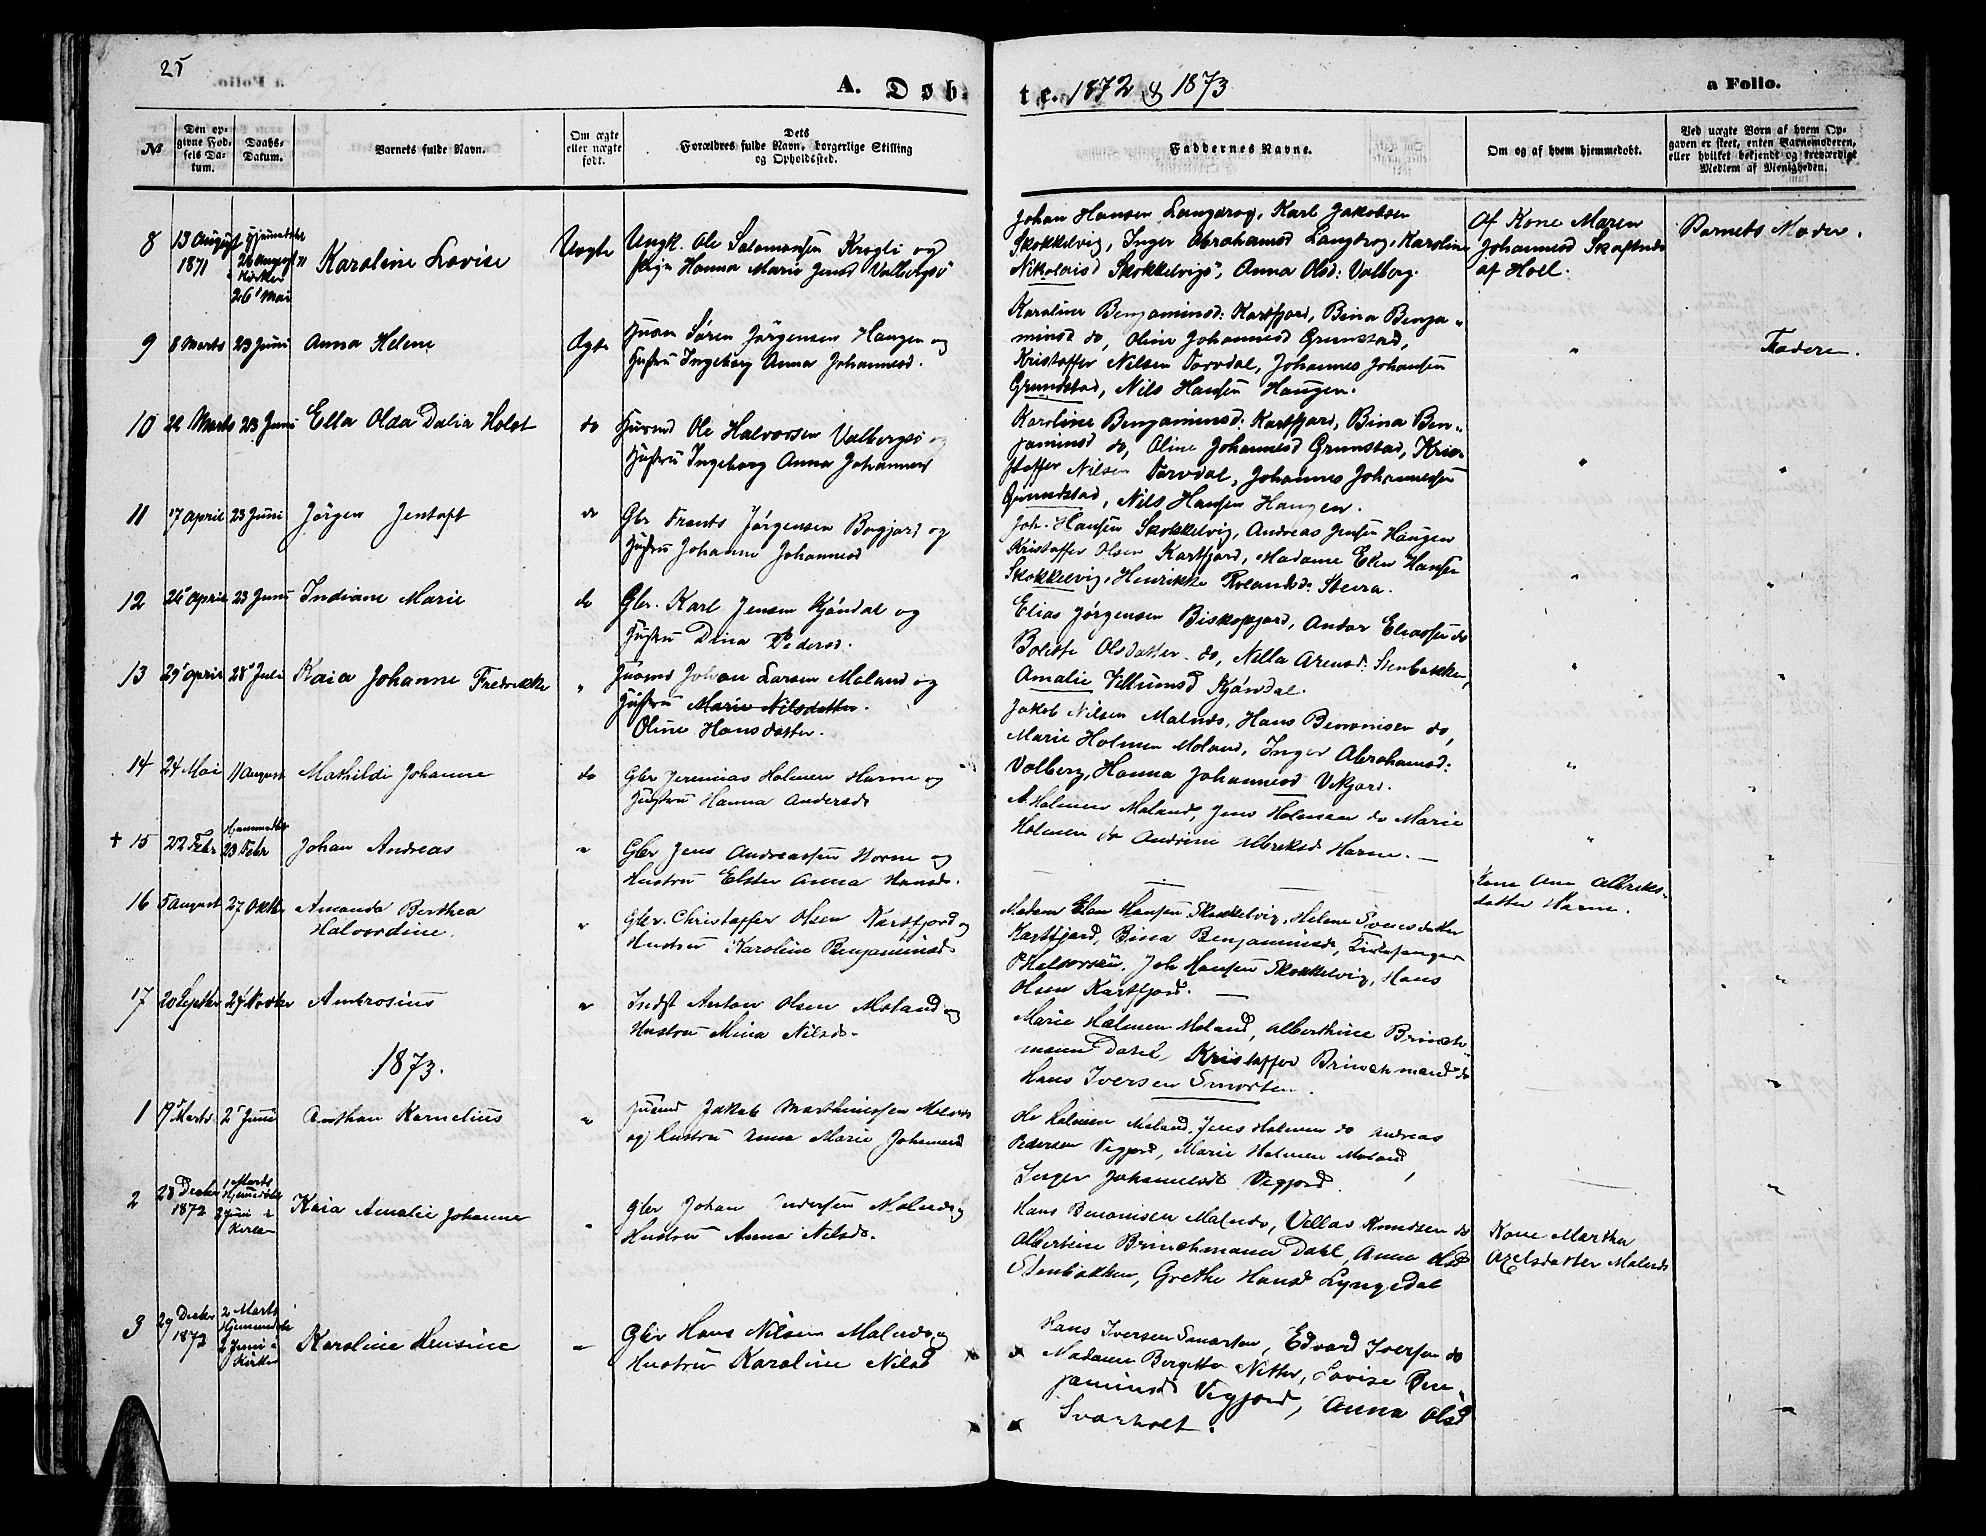 25
A. Døb-
te. 1872 & 1873
a Folio.
№
Den op-
givne Fød-
sels Da-
tum.
Daabs-
Datum.
Barnets fulde Navn.
Om ægte
eller uægte
født.
Dets
Forældres fulde Navn, borgerlige Stilling
og Opholdssted.
Faddernes Navne.
Om og af hvem hjemmedøbt.
Ved uægte Børn af hvem Op-
gaven er skeet, enten Barnemoderen,
eller hvilket bekjendt og troværdigt
Medlem af Menigheden.
8
13 August
1871
26 August
i Kirken
26 Mai
Karoline Lovise
Uægte
Ungk. Ole Salamonsen Krogli og
Pige Hanna Marie Jensd Valbergsö
Johan Hansen Langdrog, Karl Jakobsen
Skokkelvig, Inger Abrahamsd Langdrog, Karoline
Nikolaisd Skokkelvig, Anna Olsd: Valberg.
Af Kone Maren
Johannesd Skaftnes
af Holl.
Barnets Moder.
9
8 Marts
23 Juni
Anna Helene
Ægte
Huusm Søren Jørgensen Haugen og
Hustru Ingeborg Anna Johannesd.
Karoline Benjaminsd: Kartfjord, Bina Benja-
minsd do, Oline Johannesd Grunstad,
Kristoffer Nilsen Torvdal, Johannes Johansen
Grundstad, Nils Hansen Haugen.
"
Faderen.
10
22 Marts
23 Juni
Ella Olda Dalia Holst
do
Huusmd Ole Halvorsen Valbergsö og
Hustru Ingeborg Anna Johannesd
Karoline Benjaminsd: Kartfjord, Bina Ben-
jaminsd do, Oline Johannesd Grunstad, Kris-
toffer Nilsen Torvdal, Johannes Johannessen
Grundstad, Nils Hansen Haugen.
"
"
11
17 April
23 Juni
Jørgen Jentoft
do
Gbr Frants Jørgensen Bogjord og
Hustru Johanne Johannesd
Joh. Hansen Skokkelvig, Andreas Jensen Haugen
Kristoffer Olsen Kartfjord, Madame Elen Hansen
Skokkelvig, Henrikke Rolandsd: Steira.
"
"
12
26 April
23 Juni
Indiane Marie
do
Gbr. Karl Jensen Kjöndal og
Hustru Dina Pedersd.
Elias Jørgensen Biskopjord, Andor Eliassen do
Bolette Olsdatter do, Nella Arensd: Stenbakken,
Amalie Villumsd Kjöndal.
"
"
13
29 April
28 Juli
Kaia Johanne Fredrikke
"
Huusmd Johan Larsen Moland og
Hustru Marie Nilsdatter.
Oline Hansdatter.
Jakob Nilsen Malnes, Hans Benonisen do,
Marie Holmen Moland, Inger Abrahamsd:
Valberg, Hanna Johannesd Vikjord.
"
14
24 Mai
11 August
Mathilde Johanne
do
Gbr Jeremias Holmen Harne og
Hustru Hanna Andersd
A. Holmen Moland, Jens Holmen do Marie
Holmen do Andrine Albriksd Harne. —
"
"
+ 15
22 Febr
Hjemmedbt
23 Febr
Johan Andreas
"
Gbr Jens Andreassen Horne og
Hustru Elster Anna Hansd.
—
—
Kone Ane Albriks-
datter Harne.
"
16
5 August
27 Oktbr
Amanda Berthea
Halvordine.
"
Gbr. Christoffer Olsen Kartfjord og
Hustru Karoline Benjaminsd.
Madam Elen Hansen Skokkelvig, Helene Svensdatter
Kartfjord, Bina Benjaminsd, Kirkesanger
P Halvorsen, Joh Hansen Skokkelvig, Hans
Olsen Kartfjord. —
"
17
20 Septbr
24 Novbr
Ambrosius
"
Indst Anton Olsen Moland og
Hustru Mina Nilsd.
Marie Holmen Moland, Alberthine Brinch-
mann Dahl, Kristoffer Brinchmand do
Hans Iversen Smorten.
"
1873.
1
17 Marts
2 Juni
Anthon Kornelius
"
Huusmd Jakob Marthinussen Malnes
og Hustru Anna Marie Johannesd
Ole Holmen Moland, Jens Holmen do Andreas
Pedersen Vegjord, Marie Holmen Moland,
Inger Johannesdt Vegjord.
"
2
28 Decbr
1872
1 Marts
Hjemmedøbt
2 Juni i
Kirken
Kaia Amalie Johanne
"
Gbr Johan Andersen Malnes og
Hustru Anna Nilsd.
Hans Benonisen Malnes, Villas Knudsen do
Albertine Brinchmann Dahl, Anne Olsd
Stenbakken, Grethe Hansd Lyngedal
Kone Martha
Axelsdatter Malnes
3
29 Decbr
1872
2 Marts
Hjemmedøbt
2 Juni i
Kirken
Karoline Hensine
"
Gbr Hans Nilsen Malnes og
Hustru Karoline Nilsd
Hans Iversen Smorten, Edvard Iversen do
Madame Bergitte Nitter, Lovise Ben-
jaminsd Vegjord, Anna Olsd
Svarholt.
"